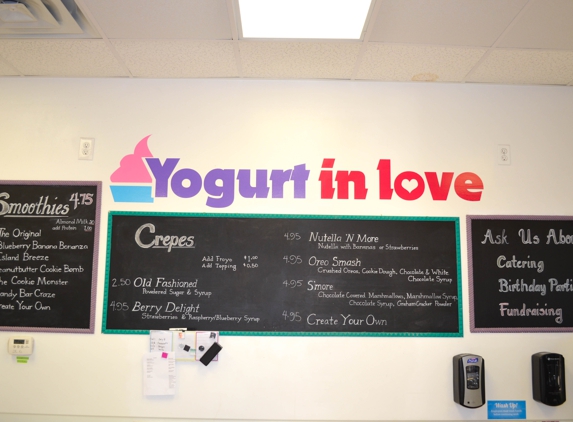 Yogurt in love
Smoothies 4.75
Almond Milk
add Protein
The Original
Blueberry Banana Bonanza
Island Breeze
Peanutbutter Cookie Bomb
The Cookie Monster
Candy Bar Craze
Create Your Own
Crepes
Add Froyo $1.00
Add Topping $0.50
2.50 Old Fashioned
Powdered Sugar & Syrup
4.95 Berry Delight
Strawberries & Raspberry/Blueberry Syrup
4.95 Nutella 'N More
Nutella with Bananas or Strawberries
4.95 Oreo Smash
Crushed Oreos, Cookie Dough, Chocolate & White
Chocolate Syrup
4.95 Smore
Chocolate Covered Marshmallows, Marshmallow Syrup,
Chocolate Syrup, Graham Cracker Powder
4.95 Create Your Own
Ask Us Abou
Catering
Birthday Parti
Fundraising